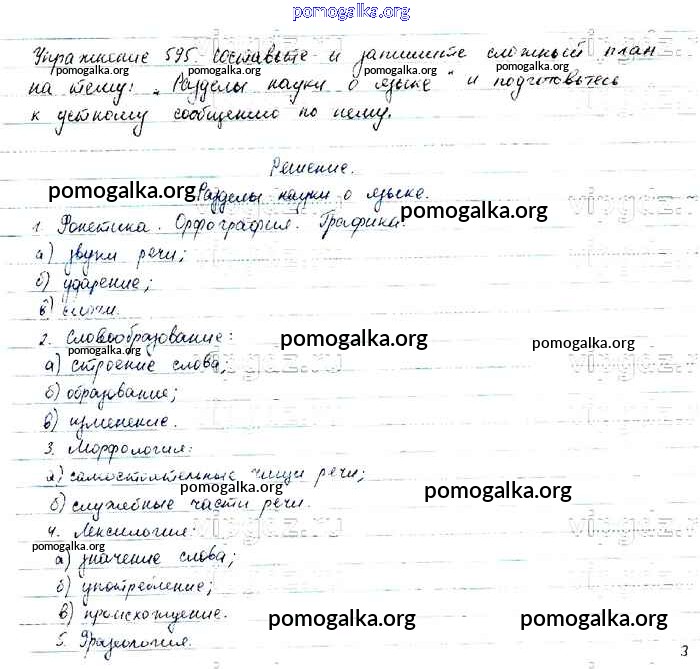 pomogalka.org
Упражнение 595. Составьте и запишите сложный план
pomogalka.org pomogalka.org pomogalka.org
на тему: „Разделы науки о языке" и подготовьтесь
к устному сообщению по нему.
Решение.
pomogalka.org
Разделы науки о языке.
pomogalka.org
1. Фонетика. Орфография. Графика.
а) звуки речи;
б) ударение;
в) слоги.
2. Словообразование:
pomogalka.org pomogalka.org pomogalka.org
а) строение слова;
б) образование;
в) изменение.
3. Морфология:
а) самостоятельные части речи;
pomogalka.org pomogalka.org
б) служебные части речи.
vipgdz.ru
4. Лексилогия:
pomogalka.org
а) значение слова;
б) употребление;
в) происхождение.
pomogalka.org pomogalka.org
5. Фразеология.
3